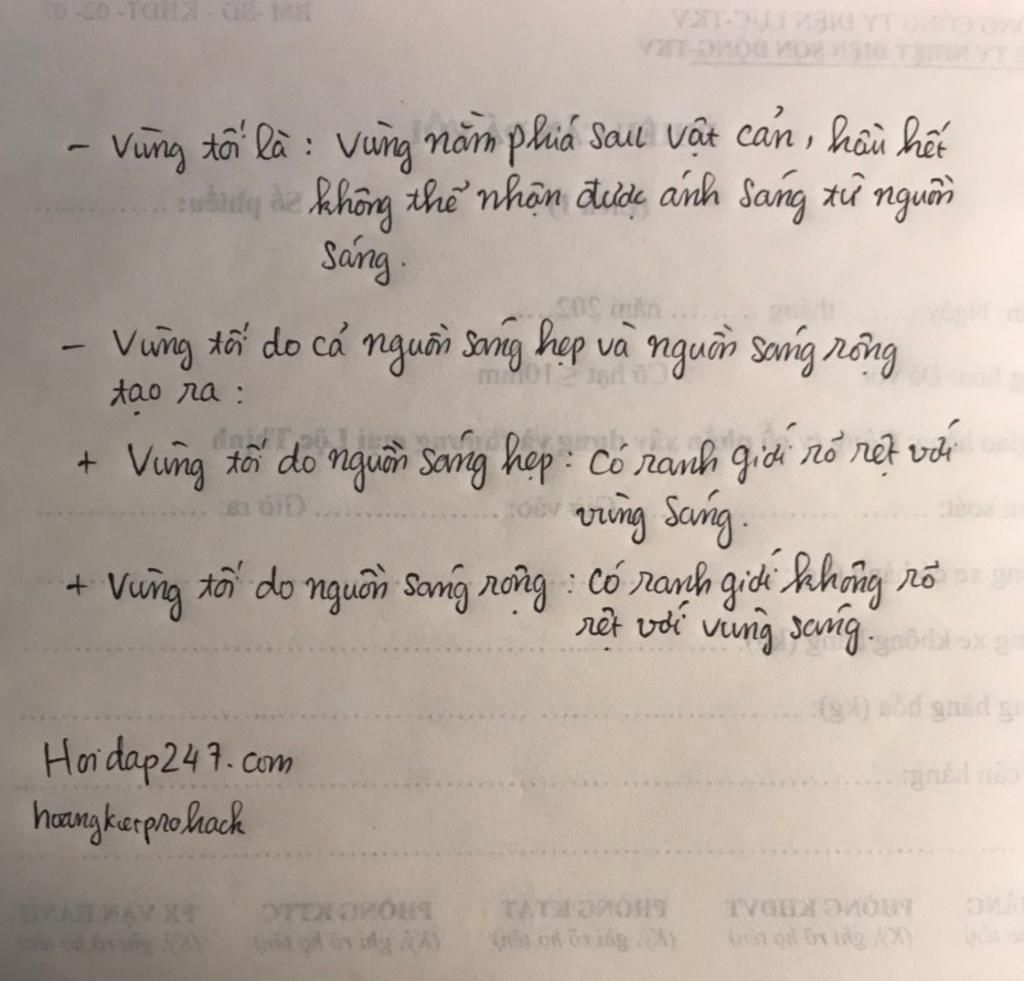 - Vùng tối là: Vùng nằm phiá sau vật cản, hầu hết
không thể nhận được ánh sáng từ nguồn
sáng.
- Vùng tối do cả nguồn sáng hẹp và nguồn sáng rộng
tạo ra:
+ Vùng tối do nguồn sáng hẹp: có ranh giới rõ rệt với
vùng sáng.
+ Vùng tối do nguồn sáng rộng: có ranh giới không rõ
rệt với vùng sáng.
Hoidap247.com
hoangkietprohack